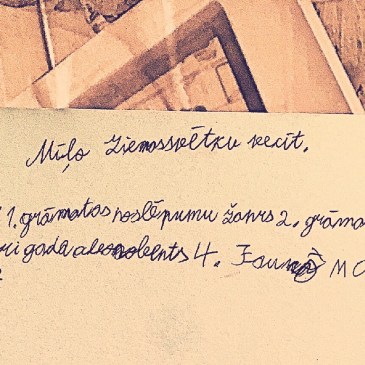 Mīļo Ziemassvētku vecīt.
1. grāmatas noslēpumu žanrs 2. grāma
gada abonements 4. Jauna